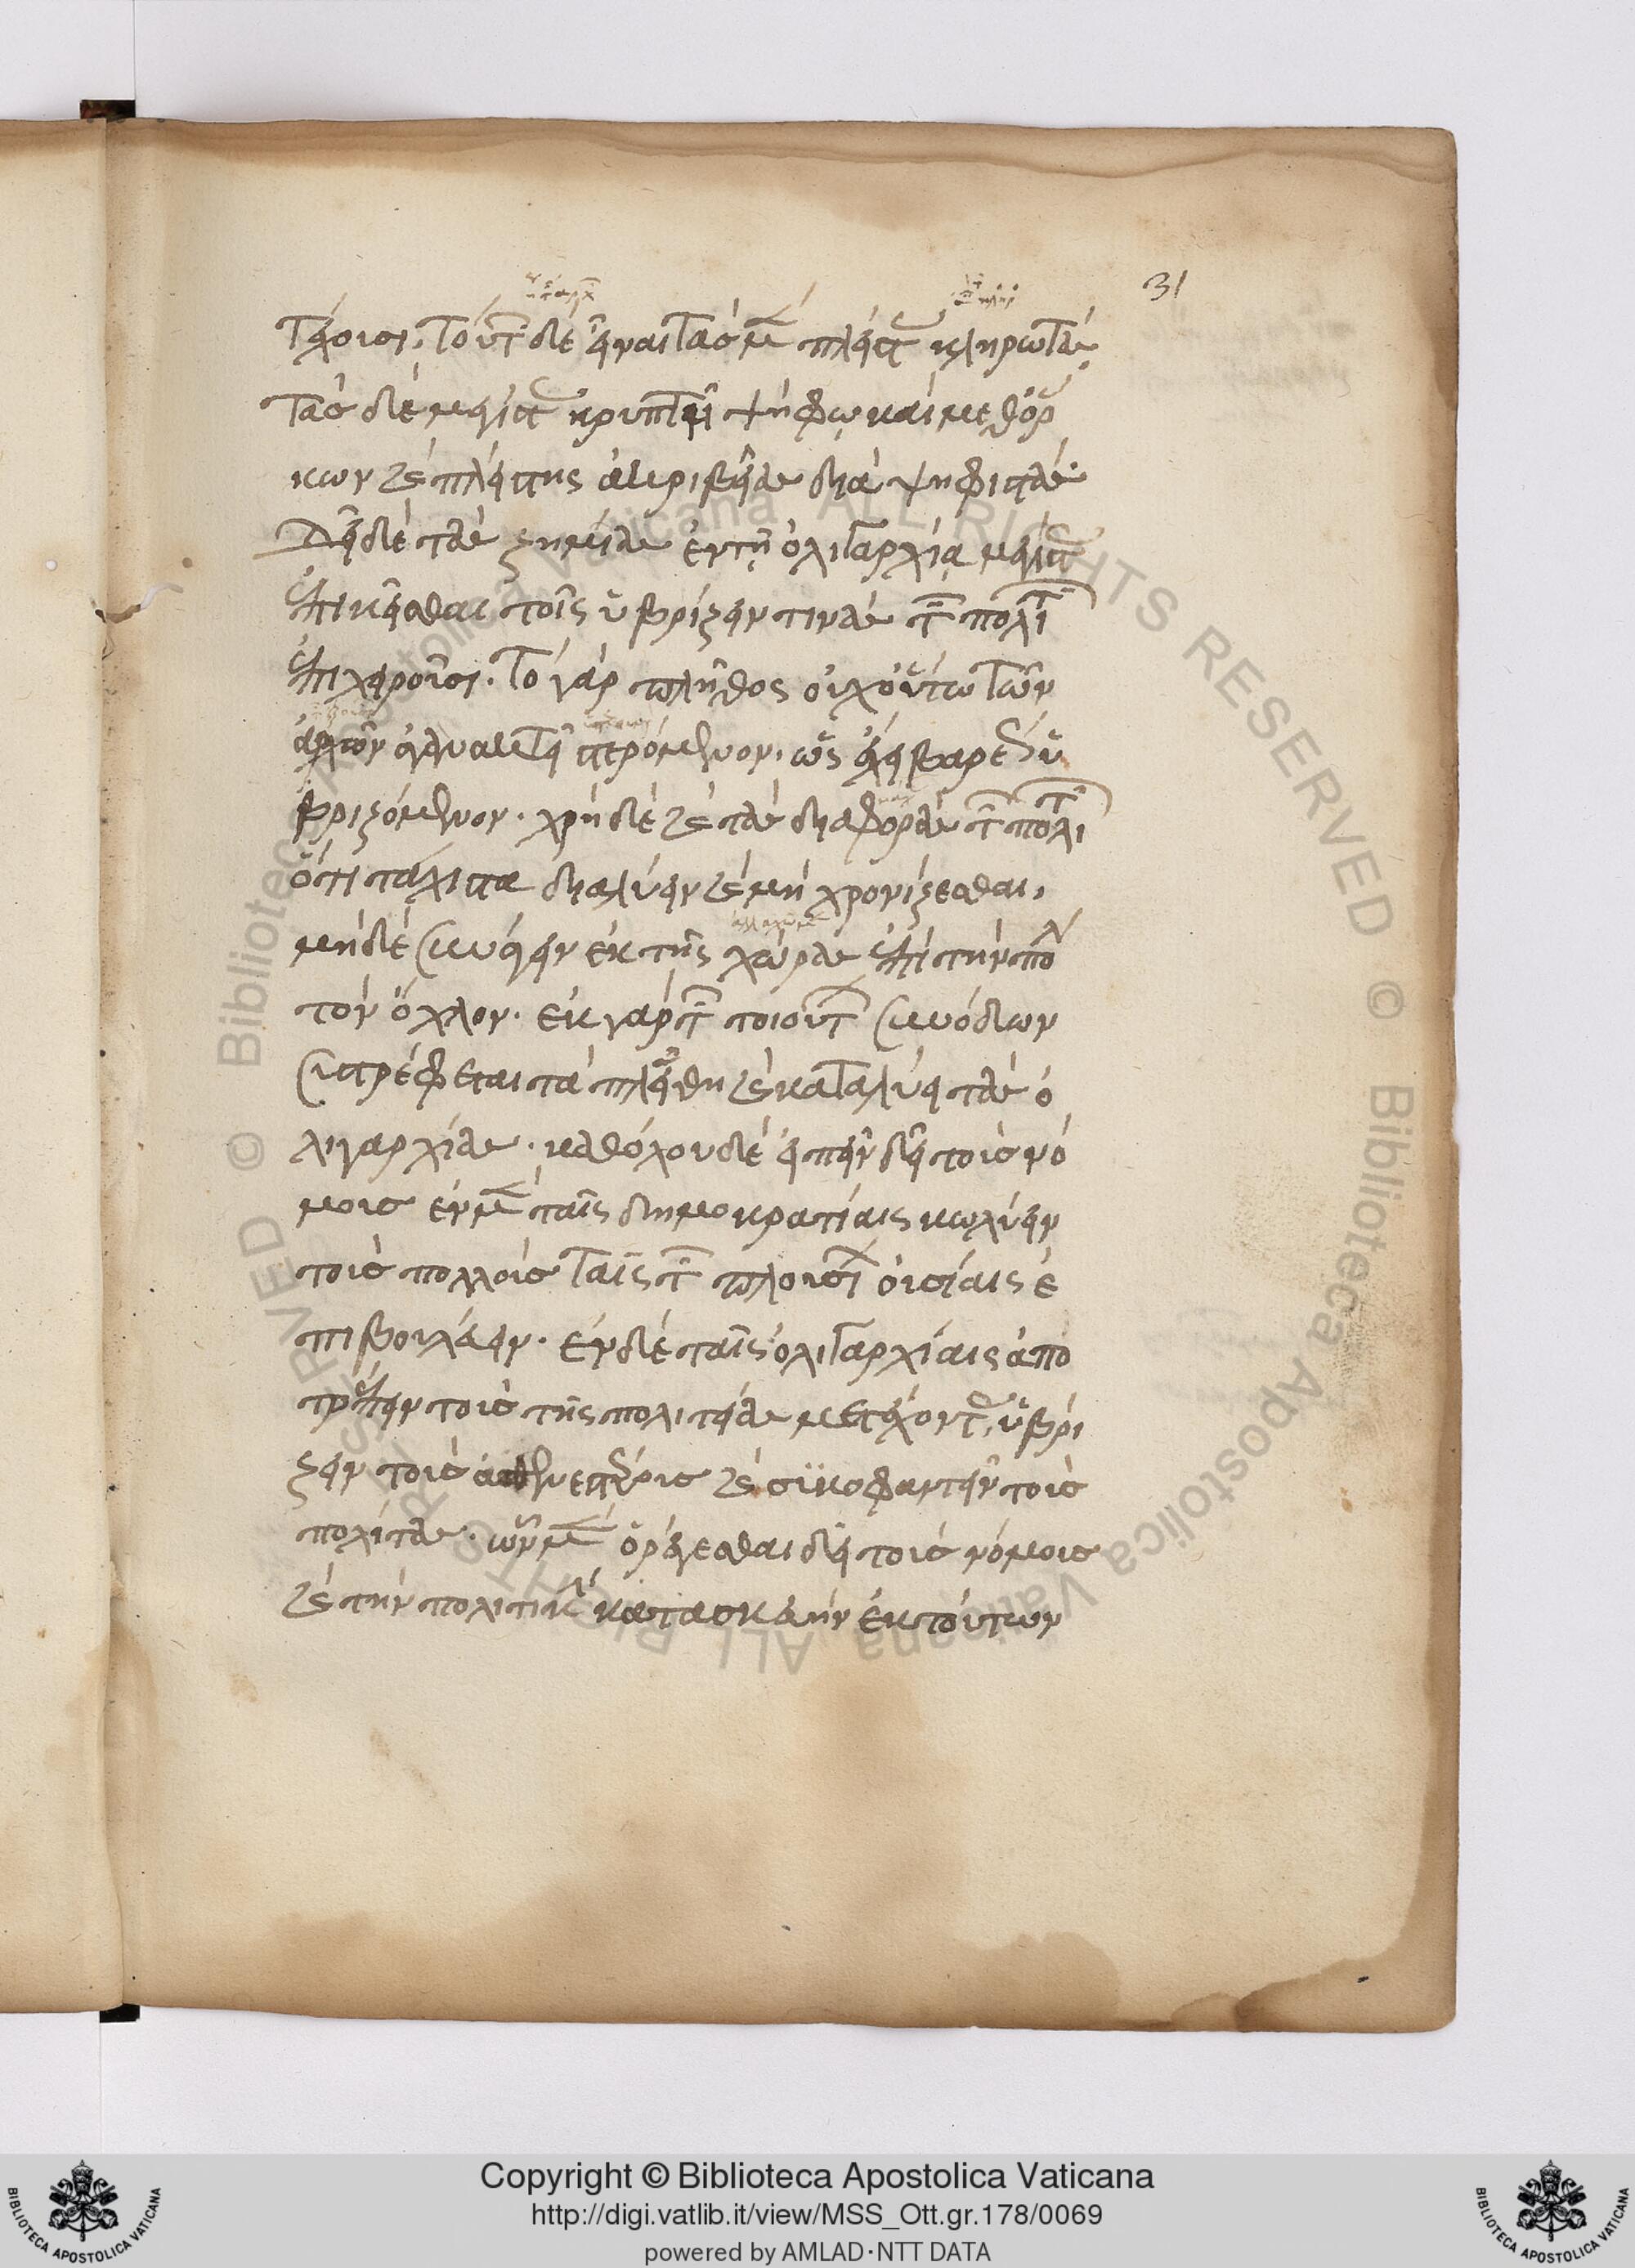 31
τέροισι. τούτων δὲ εἶναι τὰς μὲν πλείστας κληρωτάς
τὰς δὲ μεγίστας κρυπτῆι ψήφω καὶ μεθ' ὅρ
κων καὶ πλείστης ἀκριβείας διαψηφιστάς
Δεῖ δὲ τὰς ζημίας ἐν τῇ ὀλιγαρχίᾳ μεγίστας
ἐπικεῖσθαι τοῖς ὑβρίζειν τινὰς τῶν πολιτῶν
ἐπιχειροῦσι. τὸ γὰρ πλῆθος οὐχ οὕτω τῶν
ἀρχῶν ἀγανακτεῖ στερόμενον. ὡς ἔχει βαρέως ὑ
βριζόμενον. χρὴ δὲ καὶ τὰς διαφορὰς τῶν πολιτῶν
ὅτι τάχιστα διαλύειν καὶ μὴ χρονίζεσθαι,
μὴ δὲ συνάγειν ἐκ τῆς χώρας ἐπὶ τὴν πόλιν
τὸν ὄχλον. ἐκ γὰρ τῶν τοιούτων συνόδων
συστρέφεται τὰ πλήθη καὶ καταλύει τὰς ὀ
λιγαρχίας. καθόλου δὲ εἰπεῖν δεῖ τοὺς νό
μους ἐν μὲν ταῖς δημοκρατίαις κωλύειν
τοὺς πολλοὺς ταῖς τῶν πλουσίων οὐσίαις ἐ
πιβουλεύειν. ἐν δὲ ταῖς ὀλιγαρχίαις ἀπο
τρέπειν τοὺς τῆς πολιτείας μετέχοντας, ὑβρί
ζειν τοὺς ἀσθενεστέρους καὶ συκοφαντεῖν τοὺς
πολίτας. ὧν μὲν ὀρέγεσθαι δεῖ τοὺς νόμους
καὶ τὴν πολιτικὴν κατασκευὴν ἐκ τούτων
Copyright © Biblioteca Apostolica Vaticana
http://digi.vatlib.it/view/MSS_Ott.gr.178/0069
powered by AMLAD·NTT DATA